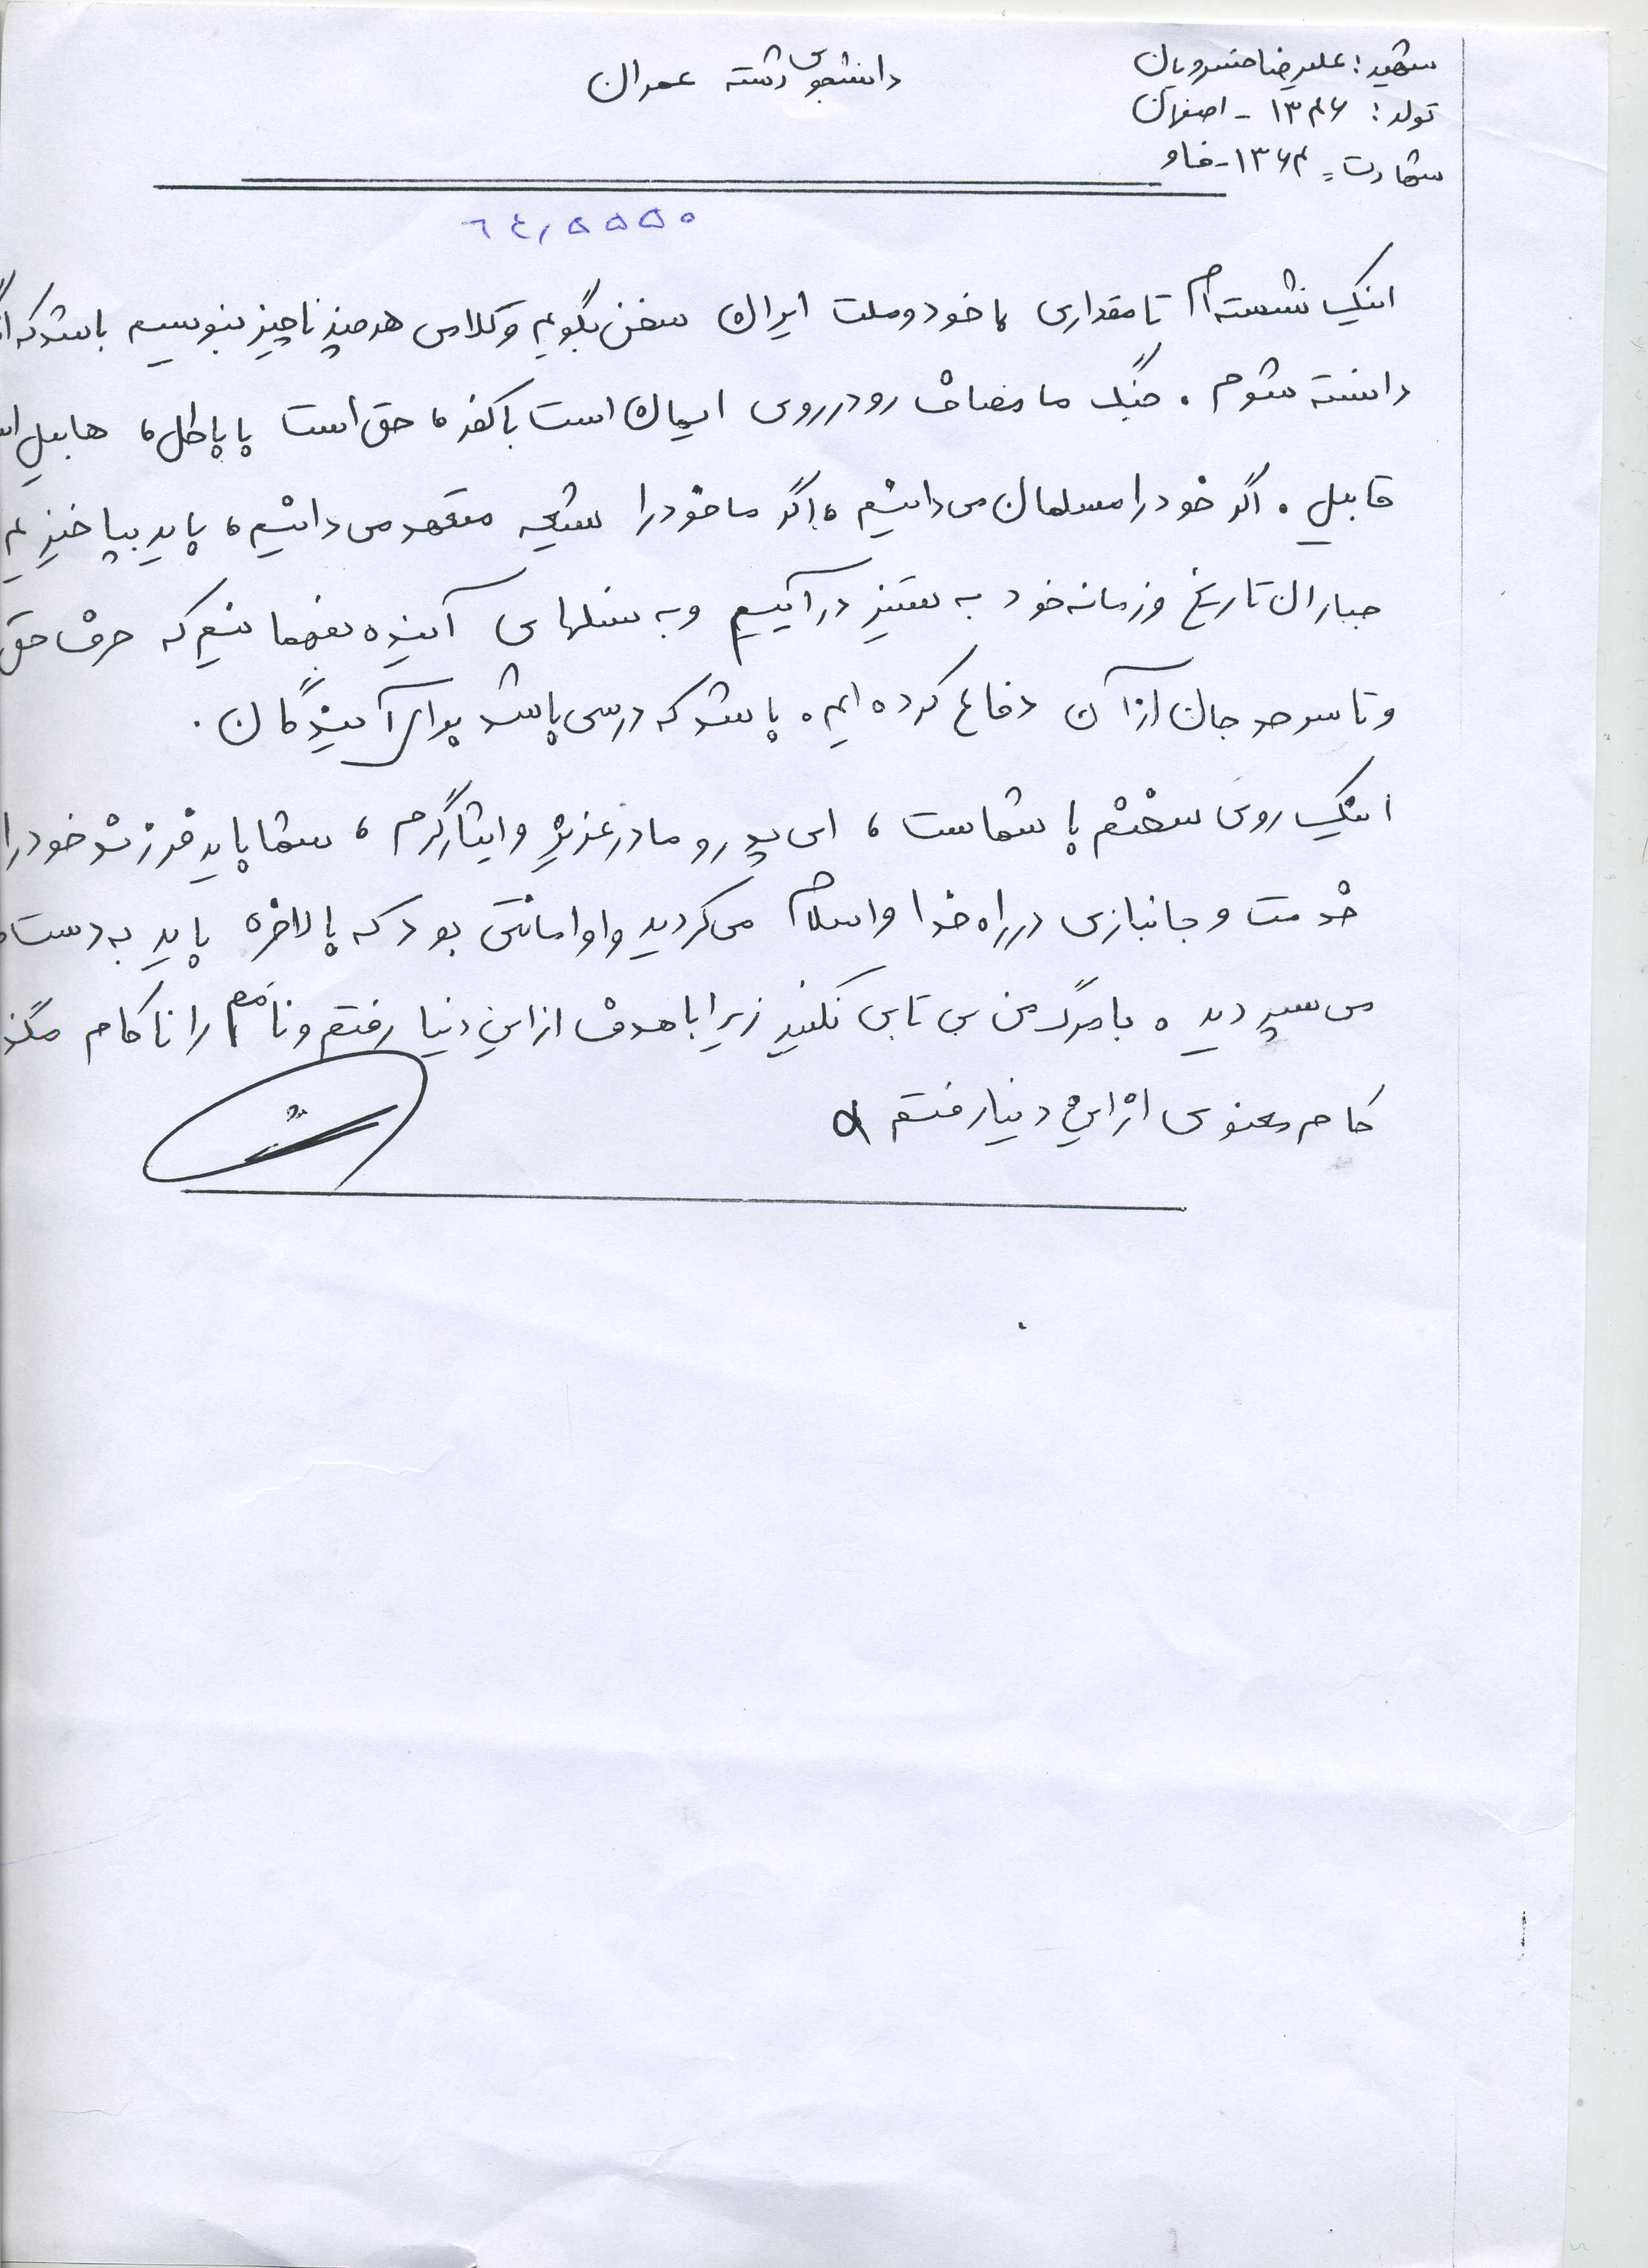 شهید: علیرضا خسرویان
دانشجوی رشته عمران
تولد: ۱۳۴۶ - اصفهان
شهادت = ۱۳۶۴ - فاو
اینک نشسته‌ام تا مقداری با خود و ملت ایران سخن بگویم و کلامی هر چند ناچیز بنویسم باشد که
دانسته شوم . جنگ ما مصاف رودرروی ایمان است با کفر ، حق است با باطل ، هابیل
قابیل . اگر خود را مسلمان می‌دانیم ، اگر ما خود را شیعه متعهد می‌دانیم ، باید بپا خیزیم
جباران تاریخ و زمانه خود به ستیز درآییم و به نسلهای آینده بفهمانیم که حرف حق
و تا سرحد جان از آن دفاع کرده ایم . باشد که درسی باشد برای آیندگان .
اینک روی سخنم با شماست ، ای پدر و مادر عزیز و ایثارگرم ، شما باید فرزند خود را
خدمت و جانبازی در راه خدا و اسلام می‌کردید و او امانتی بود که بالاخره باید به دست
می‌سپردید . با مرگ من بی تابی نکنید زیرا با هدف از این دنیا رفتم و نامم را ناکام
کام معنوی از این دنیا رفتم